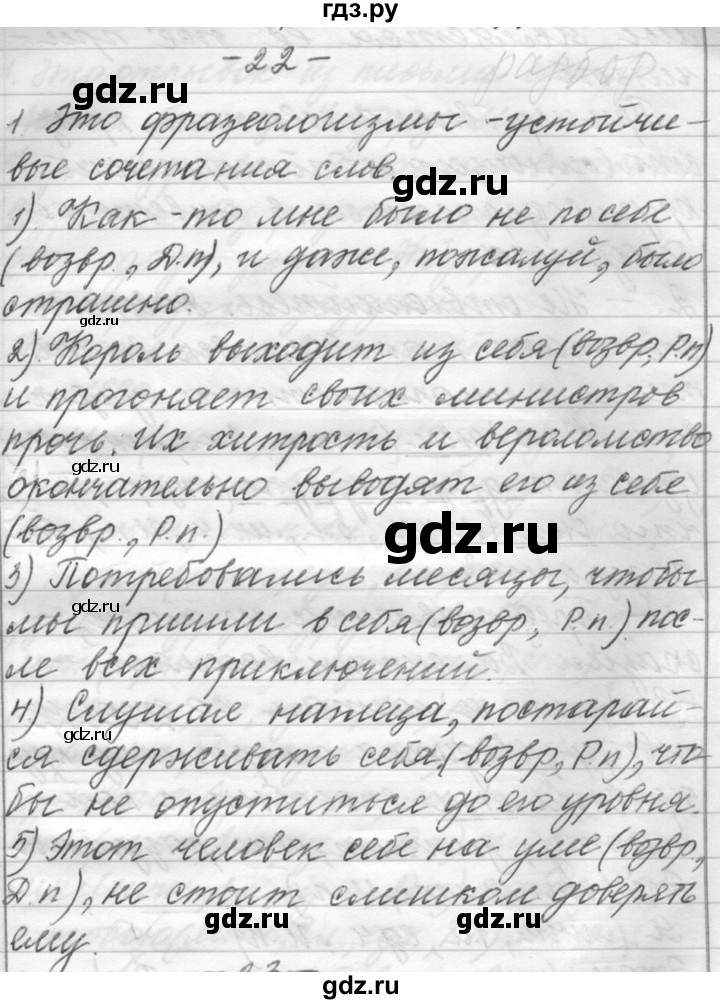 гдз.ру
-22-
разбор
1 Это фразеологизмы -устойчи-
вые сочетания слов.
gdz.ru
1). Как-то мне было не по себе
(возвр., Д.п), и даже, пожалуй, было
страшно.
gdz.ru
2). Король выходит из себя (возвр, Р.п)
и прогоняет своих министров
прочь. Их хитрость и вероломство
gdz.ru
окончательно выводят его из себе
(возвр., Р.п.)
gdz.ru
3) Потребовались месяцы, чтобы
мы пришли в себя (возвр, Р.п.) пос-
ле всех приключений.
4.) Слушая наглеца, постарай-
gdz.ru
ся сдерживать себя (возвр, Р.п), что
бы не опуститься до его уровня.
5) Этот человек себе на уме (возвр,
Д.п), не стоит слишком доверять
gdz.ru
gdz.ru
ему.
gdz.ru